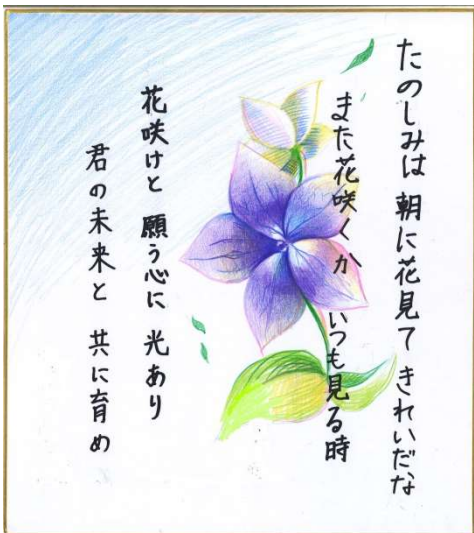 たのしみは 朝に花見て きれいだな
また花咲くか いつも見る時
花咲けと 願う心に 光あり
君の未来と 共に育め